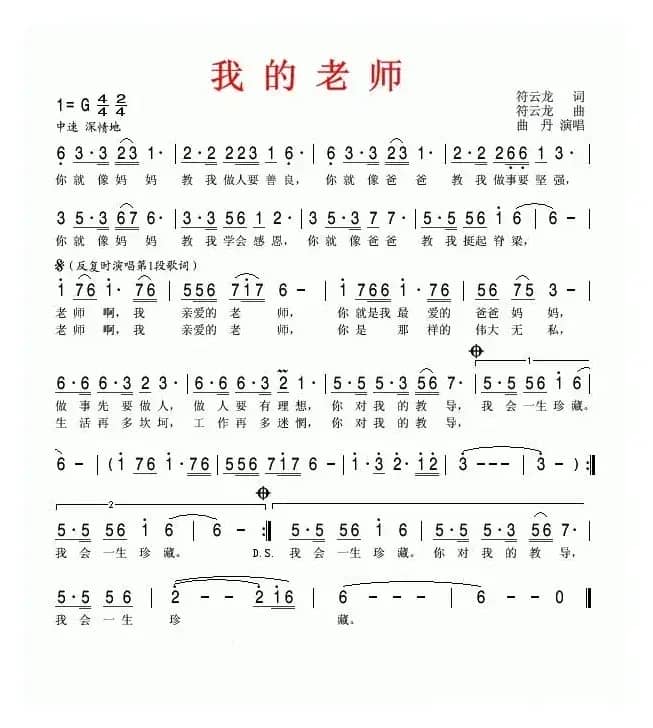 我的老师
1=G 4/4 2/4
符云龙 词
符云龙 曲
中速 深情地
曲 丹 演唱
6 3·3 23 1· | 2·2 223 1·6 | 6 3·3 23 1 | 2·2 266 1 3· |
你就像妈妈 教我做人要善良, 你就像爸爸 教我做事要坚强,
3 5·3 67 6· | 3·3 56 1 2· | 3 5·3 7 7· | 5·5 56 1 6 | 6 - |
你就像妈妈 教我学会感恩, 你就像爸爸 教我挺起脊梁,
(反复时演唱第1段歌词)
1 76 1· 76 | 556 717 6 - | 1 766 1 6· | 56 56 75 3 |
老师啊,我 亲爱的老师, 你就是我最爱的爸爸妈妈,
老师啊,我 亲爱的老师, 你是那样的伟大无私,
1
6·6 6·3 2 3· | 6·6 6·3 2 1· | 5·5 3·3 56 7· | 5·5 56 1 6 |
做事先要做人, 做人要有理想, 你对我的教导, 我会一生珍藏。
生活再多坎坷, 工作再多迷惘, 你对我的教导,
6 - (1 76 1·76 | 556 717 6 6· | 1·3 2·2 12 | 3 - - - | 3 - ) :‖
2
5·5 56 1 6 | 6 - :‖ 5·5 56 1 6 | 5·5 5·3 56 7· |
我会一生珍藏。 D.S. 我会一生珍藏。你对我的教导,
5·5 5 6 | 2 - - 2 16 | 6 - - - | 6 - - 0 ‖
我会一生 珍 藏。